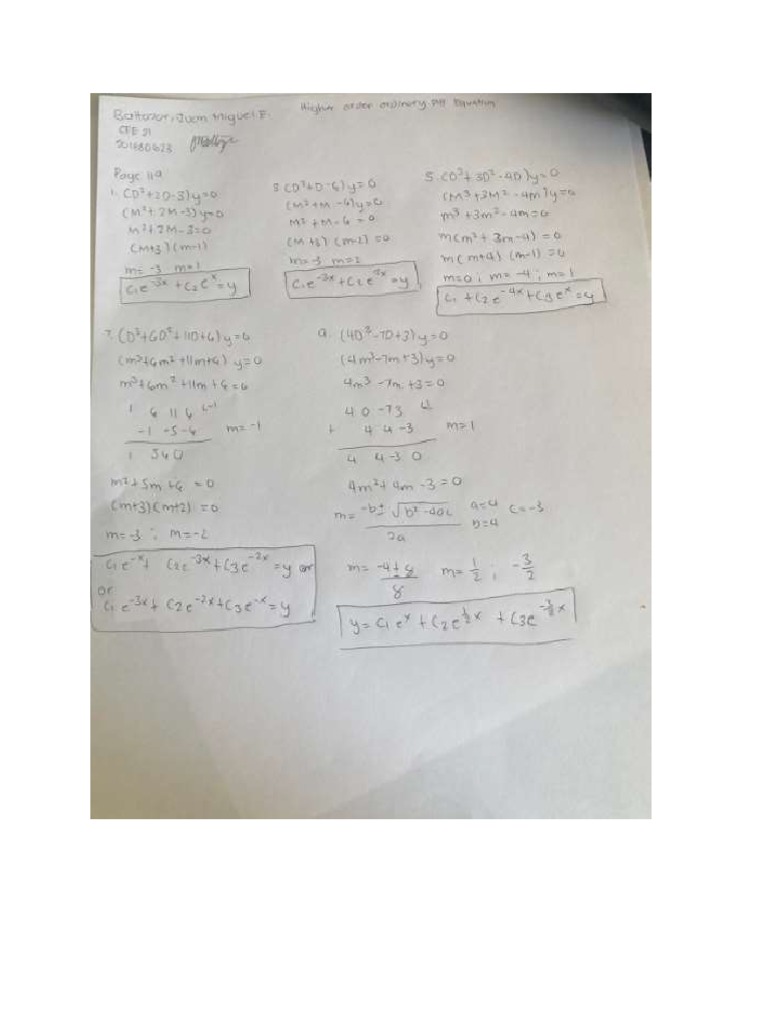 Higher order ordinary Diff Equation
Baltazar, Juem Miguel F.
CFE 21
Page 119
1. (D²+2D-3)y=0
(M²+2M-3)y=0
M²+2M-3=0
(M+3)(m-1)
m=-3 m=1
C₁e^-3x + C₂e^x = y
3. (D²+D-6)y=0
(M²+M-6)y=0
M²+M-6=0
(M+3)(m-2)=0
m=-3 m=2
C₁e^-3x + C₂e^2x = y
5. (D³+3D²-4D)y=0
(M³+3M²-4m)y=0
m³+3m²-4m=0
m(m²+3m-4)=0
m(m+4)(m-1)=0
m=0; m=-4; m=1
C₁+C₂e^-4x+C₃e^x=y
7. (D³+6D²+11D+6)y=0
(m³+6m²+11m+6)y=0
m³+6m²+11m+6=0
1 6 11 6 ∟-1
-1 -5 -6 m=-1
1 5 6 0
m²+5m+6=0
(m+3)(m+2)=0
m=-3; m=-2
C₁e^-x + C₂e^-3x + C₃e^-2x = y or
or
C₁e^-3x + C₂e^-2x + C₃e^-x = y
9. (4D³-7D+3)y=0
(4m³-7m+3)y=0
4m³-7m+3=0
4 0 -7 3 ∟1
+ 4 4 -3 m=1
4 4 -3 0
4m²+4m-3=0
m= -b±√b²-4ac / 2a a=4 b=4 c=-3
m= -4±8 / 8 m= 1/2 ; -3/2
y=C₁e^x + C₂e^½x + C₃e^-3/2x